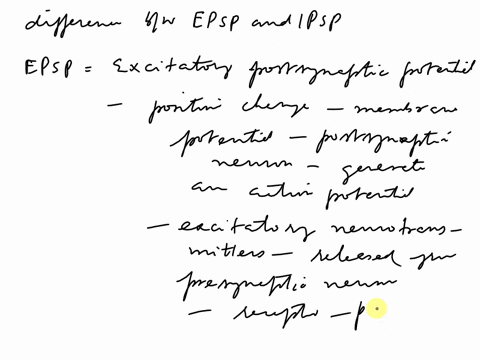 difference b/w EPSP and IPSP
EPSP = Excitatory postsynaptic potential
- positive change - membrane
potential - postsynaptic
neuron - generate
an action potential
- excitatory neurotrans-
mitters - released from
presynaptic neuron
- receptor - p